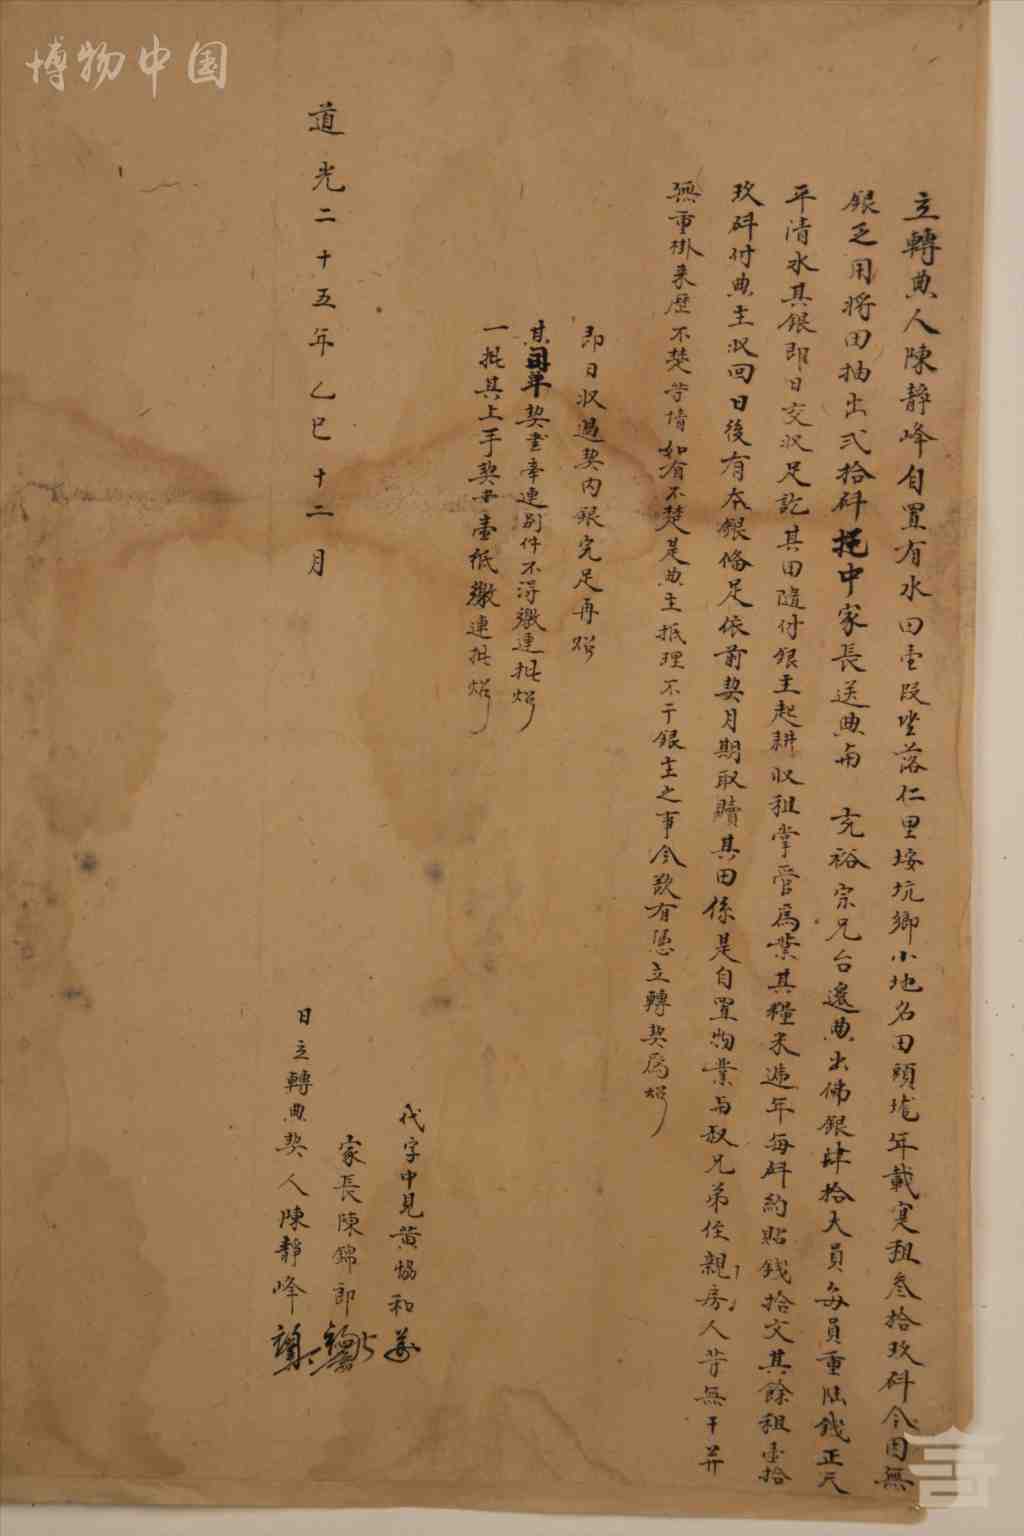 立轉典人陳靜峰自置有水田壹段坐落仁里垵坑鄉小地名田頭垅年載寔租叁拾玖科今因無
銀乏用將田抽出弍拾科托中家長送典與 克裕宗兄台邊典出佛銀肆拾大員每員重陸錢正天
平清水其銀即日交收足訖其田隨付銀主起耕收租掌管爲業其糧米遞年每科約貼錢拾文其餘租壹拾
玖科付典主收回日後有本銀備足依前契月期取贖其田係是自置物業與叔兄弟侄親房人等無干并
無重掛來歷不楚等情如有不楚是典主抵理不干銀主之事今欲有憑立轉契爲炤
即日收過契內銀完足再炤
其契書牽連別件不得繳連批炤
一批其上手契書壹紙繳連批炤
道光二十五年乙巳十二月
代字中見黃協和
家長陳錦郎
日立轉典契人陳靜峰
博物中国